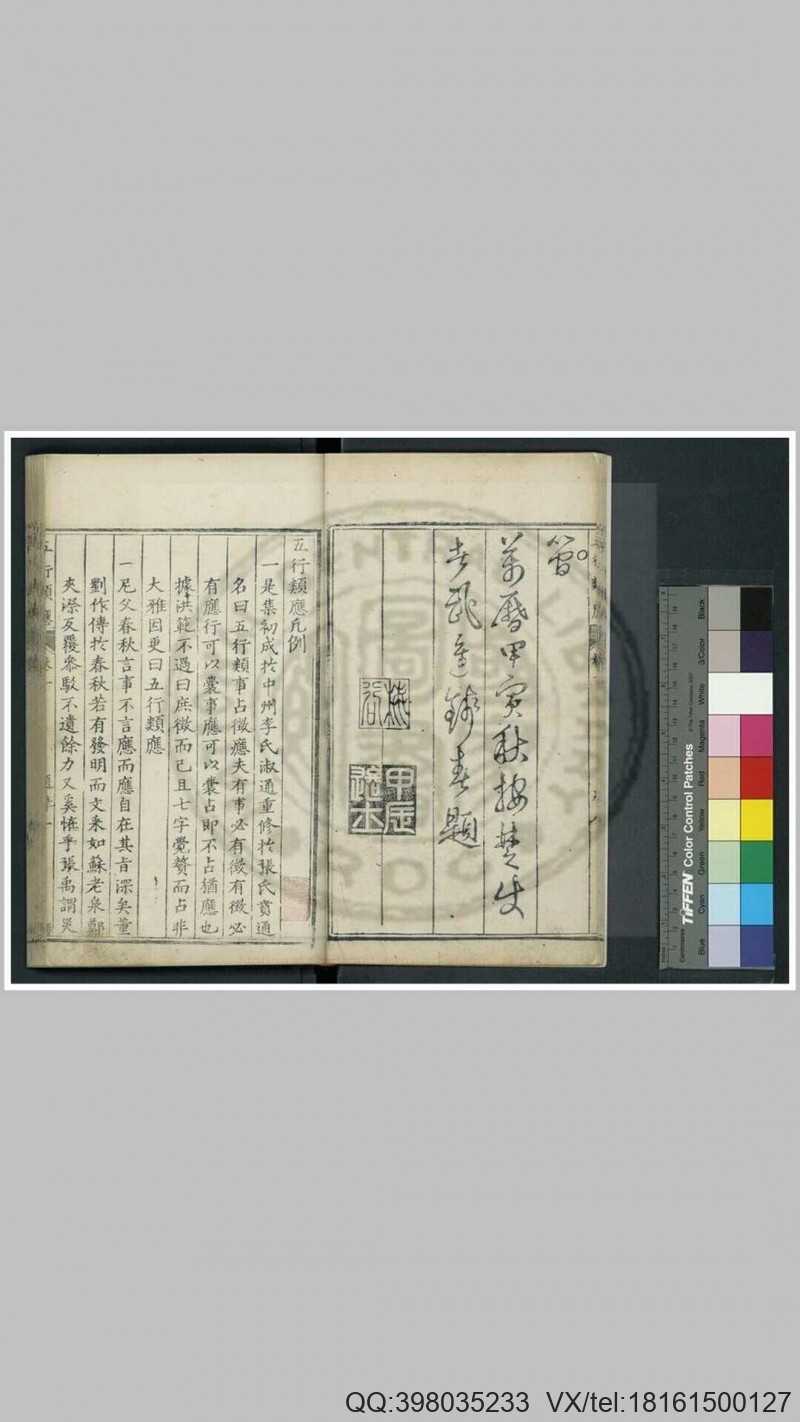 萬曆甲寅秋按楚使
五行類應凡例
一是集初成於中州李氏淑通重修於張氏貫通
名曰五行類事占徵應夫有事必有徵有徵必
有應行可以囊事應可以囊占即不占猶應也
據洪範不過曰庶徵而已且七字覺贅而占非
大雅因更曰五行類應
一尼父春秋言事不言應而應自在其旨深矣董
劉作傳於春秋若有發明而文采如蘇老泉鄭
夾漈反覆參駁不遺餘力又奚怪乎張禹謂災
五行類應
TIFFEN Color Control Patches
Blue
Cyan
Green
Yellow
Red
Magenta
White
3/Color
Black
QQ:398035233 VX/tel:18161500127